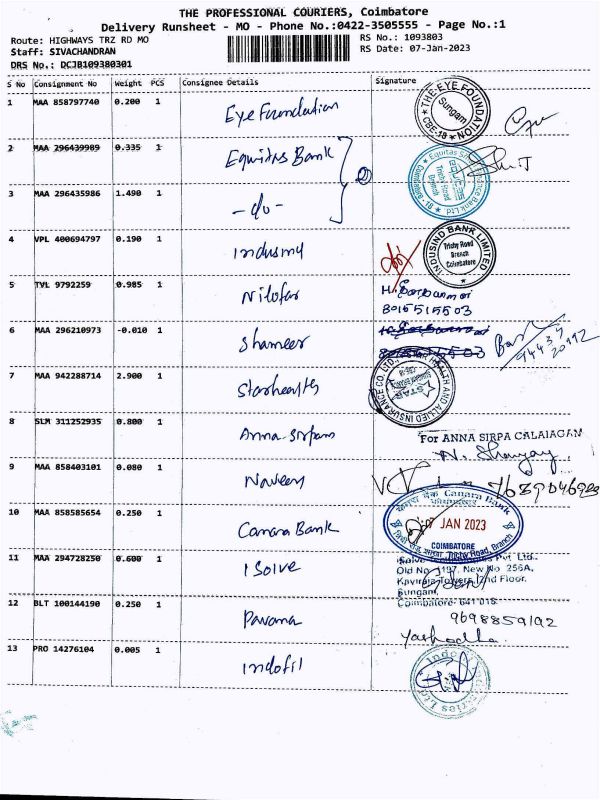 THE PROFESSIONAL COURIERS, Coimbatore
Delivery Runsheet - MO - Phone No.:0422-3505555 - Page No.:1
Route: HIGHWAYS TRZ RD MO
RS No.: 1093803
Staff: SIVACHANDRAN
RS Date: 07-Jan-2023
DRS No.: DCJB109380301
S No Consignment No Weight PCS Consignee Details Signature
1 MAA 858797740 0.200 1 Eye Foundation
THE EYE FOUNDATION Sungam CBE-18
2 MAA 296439989 0.335 1 Equitas Bank
3 MAA 296435986 1.490 1 -do-
Trichy Road Branch
4 VPL 400694797 0.190 1 Indusind
INDUSIND BANK LIMITED Trichy Road Branch Coimbatore
5 TVL 9792259 0.985 1 Nilofar
8016515503
6 MAA 296210973 -0.010 1 Shameer
7 MAA 942288714 2.900 1 Starhealth
STAR HEALTH AND ALLIED INSURANCE CO. LTD.
8 SLM 311252935 0.800 1 Anna Sirpam
For ANNA SIRPA CALAIAGAM
9 MAA 858403101 0.080 1 Naveen
10 MAA 858585654 0.250 1 Canara Bank
Canara Bank
7 JAN 2023
COIMBATORE
Trichy Road, Branch
11 MAA 294728250 0.600 1 I Solve
Old No 1197, New No 256A,
Kaviraja Towers, 2nd Floor,
Sungam,
Coimbatore- 641 018
12 BLT 100144190 0.250 1 Pavana
9698859192
Yashodha
13 PRO 14276104 0.005 1 Indofil